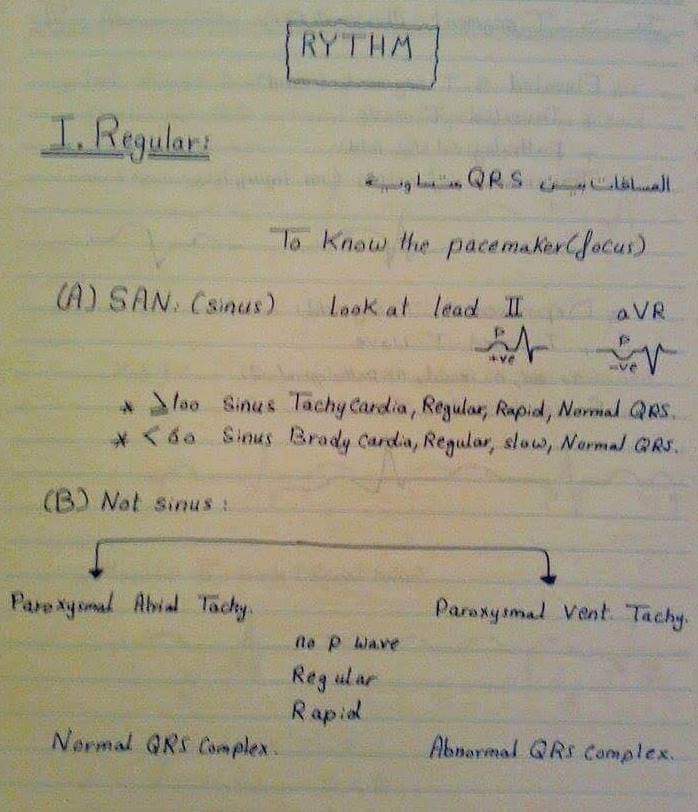 RYTHM
I. Regular:
المسافات بين QRS متساوية
To Know the pacemaker (focus)
(A) SAN. (sinus) Look at lead II aVR
P P
+ve -ve
* ≥100 Sinus TachyCardia, Regular, Rapid, Normal QRS.
* < 60 Sinus Brady Cardia, Regular, slow, Normal QRS.
(B) Not sinus :
Paroxysmal Atrial Tachy. Paroxysmal Vent. Tachy.
no P wave
Regular
Rapid
Normal QRS Complex. Abnormal QRS Complex.